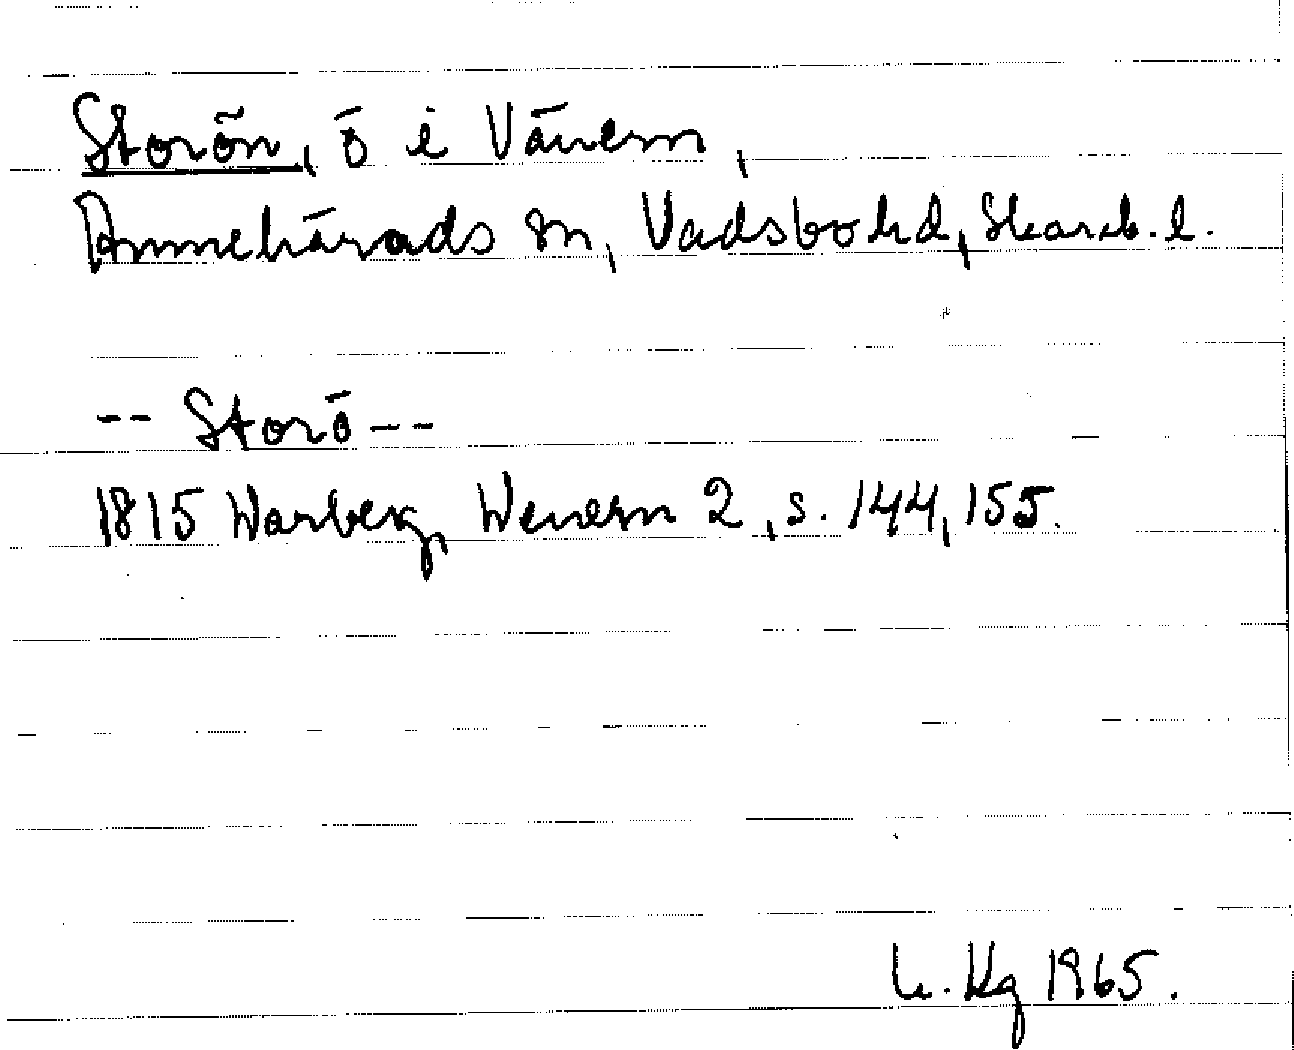 Storön, ö i Vänern,
Amnehärads sn, Vadsbo hd, Skarab. l.
-- Storö --
1815 Warberg, Wenern 2, s. 144, 155.
1965.